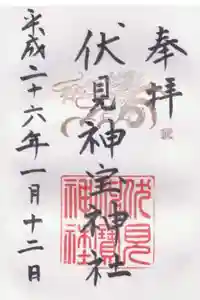 奉拝
伏見神宝神社
平成二十六年一月十二日
伏見
神寶
神社